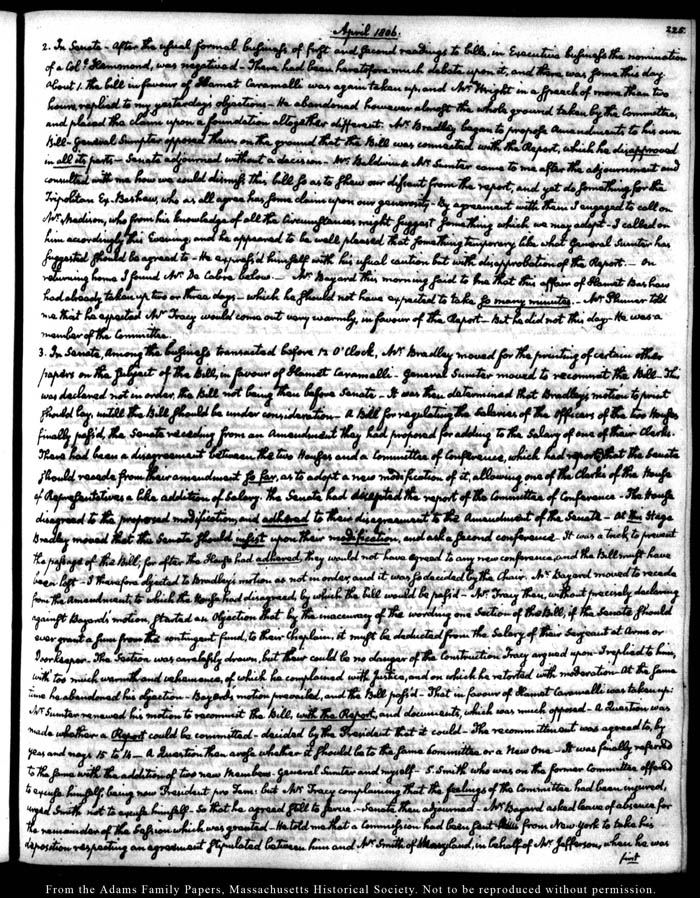 April 1806.
225.
2. In Senate - After the usual formal business of first and second readings to bills, in Executive business the nomination
of a Colo. Hammond, was negatived - There had been heretofore much debate upon it, and there was some this day
About 1. the bill in favour of Hamet Caramalli was again taken up, and Mr. Wright in a speech of more than two
hours replied to my yesterdays objections - He abandoned however almost the whole ground taken by the Committee,
and placed the claim upon a foundation altogether different. Mr. Bradley began to propose Amendments to his own
Bill - General Sumpter opposed them on the ground that the Bill was connected with the Report, which he disapproved
in all its parts - Senate adjourned without a decision. Mr. Baldwin & Mr. Sumter came to me after the adjournment and
consulted with me how we could dismiss this bill so as to shew our dissent from the report, and yet do something for the
Tripolitan Ex-Bashaw, who as all agree has some claim upon our generosity - By agreement with them I engaged to call on
Mr. Madison, who from his knowledge of all the Circumstances might suggest something which we may adopt - I called on
him accordingly this Evening, and he appeared to be well pleased that something temporary, like what General Sumter has
suggested should be agreed to - He express'd himself with his usual caution but with disapprobation of the Report - On
returning home I found Mr. De Cabre below - Mr. Bayard this morning said to me that this affair of Hamet Bashaw
had already taken up two or three days - which he should not have expected to take so many minutes. - Mr. Plumer told
me that he expected Mr. Tracy would come out very warmly, in favour of the Report - But he did not this day - He was a
member of the Committee.
3. In Senate, Among the business transacted before 12 O'Clock, Mr. Bradley moved for the printing of certain other
papers on the subject of the Bill, in favour of Hamet Caramalli - General Sumter moved to recommit the Bill - This
was declared not in order, the Bill not being then before Senate - It was then determined that Bradley's motion to print
should lay, untill the Bill should be under consideration - A Bill for regulating the Salaries of the Officers of the two Houses
finally pass'd, the Senate receding from an Amendment they had proposed for adding to the Salary of one of their Clerks.
There had been a disagreement between the two Houses and a Committee of Conference, which had reported that the Senate
should recede from their amendment so far, as to adopt a new modification of it, allowing one of the Clerks of the House
of Representatives a like addition of Salary. the Senate had accepted the report of the Committee of Conference - The House
disagreed to the proposed modification, and adhered to their disagreement to the Amendment of the Senate - At this Stage
Bradley moved that the Senate should insist upon their modification, and ask a second conference - It was a trick to prevent
the passage of the Bill; for after the House had adhered, they would not have agreed to any new conference, and the Bill must have
been lost - I therefore objected to Bradley's motion as not in order, and it was so decided by the Chair. Mr. Bayard moved to recede
from the Amendment, to which the House had disagreed, by which the bill would be pass'd - Mr. Tracy then, without precisely declaring
against Bayard's motion, started an Objection that by the inaccuracy of the wording one Section of the Bill, if the Senate should
ever grant a sum from the contingent fund, to their Chaplain, it must be deducted from the Salary of their Sergeant at Arms or
Doorkeeper. The Section was carelessly drawn, but there could be no danger of the Construction Tracy argued upon - I replied to him,
with too much warmth and vehemence, of which he complained with Justice, and on which he retorted with moderation - At the same
time he abandoned his objection - Bayard's motion prevailed, and the Bill pass'd - That in favour of Hamet Caramalli was taken up:
Mr. Sumter renewed his motion to recommit the Bill, with the Report, and documents, which was much opposed - A Question was
made whether a Report could be committed - decided by the President that it could - The recommitment was agreed to, by
yeas and nays 15 to 14 - A Question then arose whether it should be to the same Committee or a New One - It was finally referred
to the same with the addition of two new Members. General Sumter and myself - S. Smith who was on the former Committee offered
to excuse himself, being now President pro Tem: but Mr. Tracy complaining that the feelings of the Committee had been injured,
urged Smith not to excuse himself - So that he agreed still to serve - Senate then adjourned - Mr. Bayard asked leave of absence for
the remainder of the Session which was granted - He told me that a Commission had been sent from New York to take his
deposition respecting an agreement stipulated between him and Mr. Smith of Maryland, in behalf of Mr. Jefferson, when he was
first
From the Adams Family Papers, Massachusetts Historical Society. Not to be reproduced without permission.